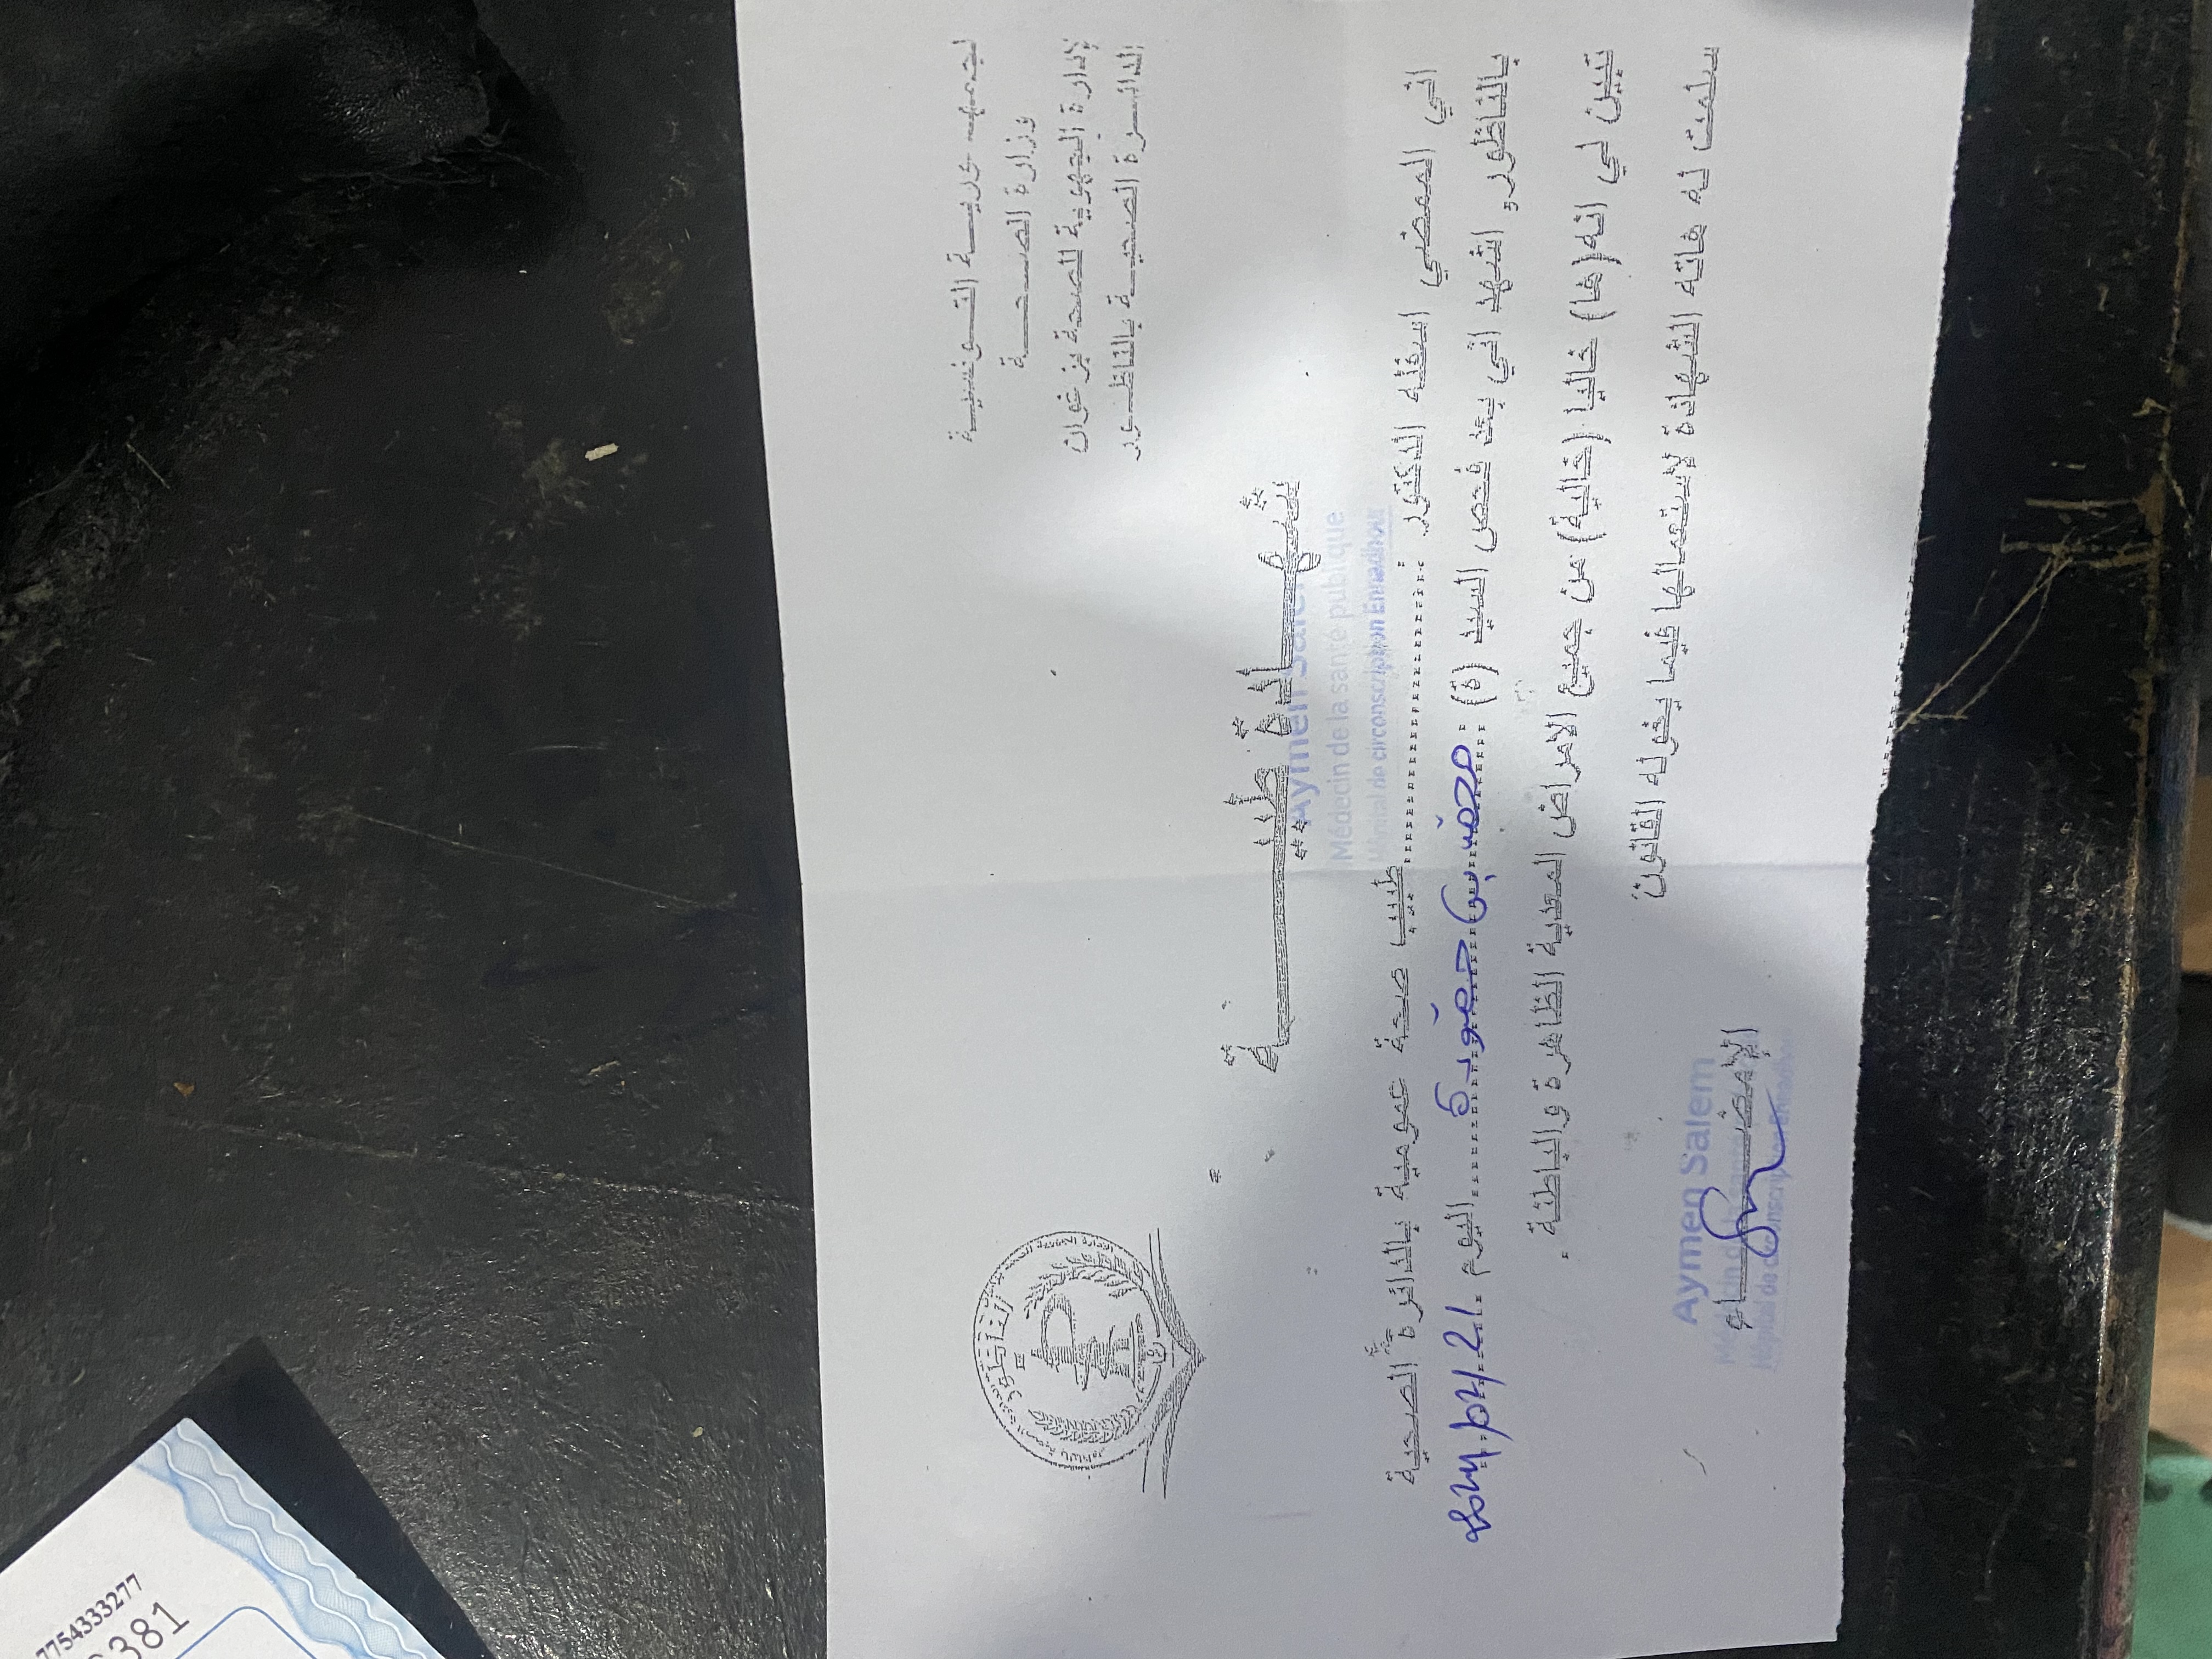 الجمهوريـــة التـــونسيـــة
وزارة الصـــحـــة
الإدارة الجهوية للصحة بزغوان
الدائـــرة الصحيـــة بالناظـــور
شهـــادة طبيـــة
Aymen Salem
Médecin de la santé publique
Hôpital de circonscription Ennadhour
اني الممضي اسفله الدكتور : .......... طبيب صحة عمومية بالدائرة الصحية
بالناظور, اشهد اني بعد فحص السيد (ة) : محمد بن حمودة اليوم
تبين لي انه(ها) خاليا (خالية) من جميع الامراض المعدية الظاهرة والباطنة .
سلمت له هاته الشهادة لاستعمالها فيما يخوله القانون
الإمضـــاء
Aymen Salem
Médecin de la santé
Hôpital de circonscription Ennadhour
7754333277
381